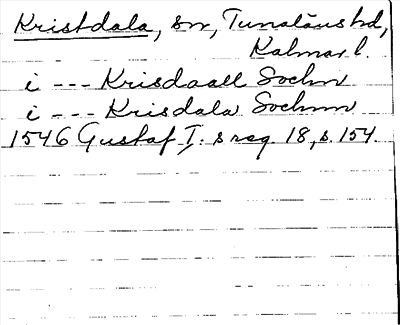 Kristdala, sn, Tunaläns hd,
Kalmar l.
i --- Krisdaall Sochn
i --- Krisdala Sochnn
1546 Gustaf I. s reg. 18, s. 154.